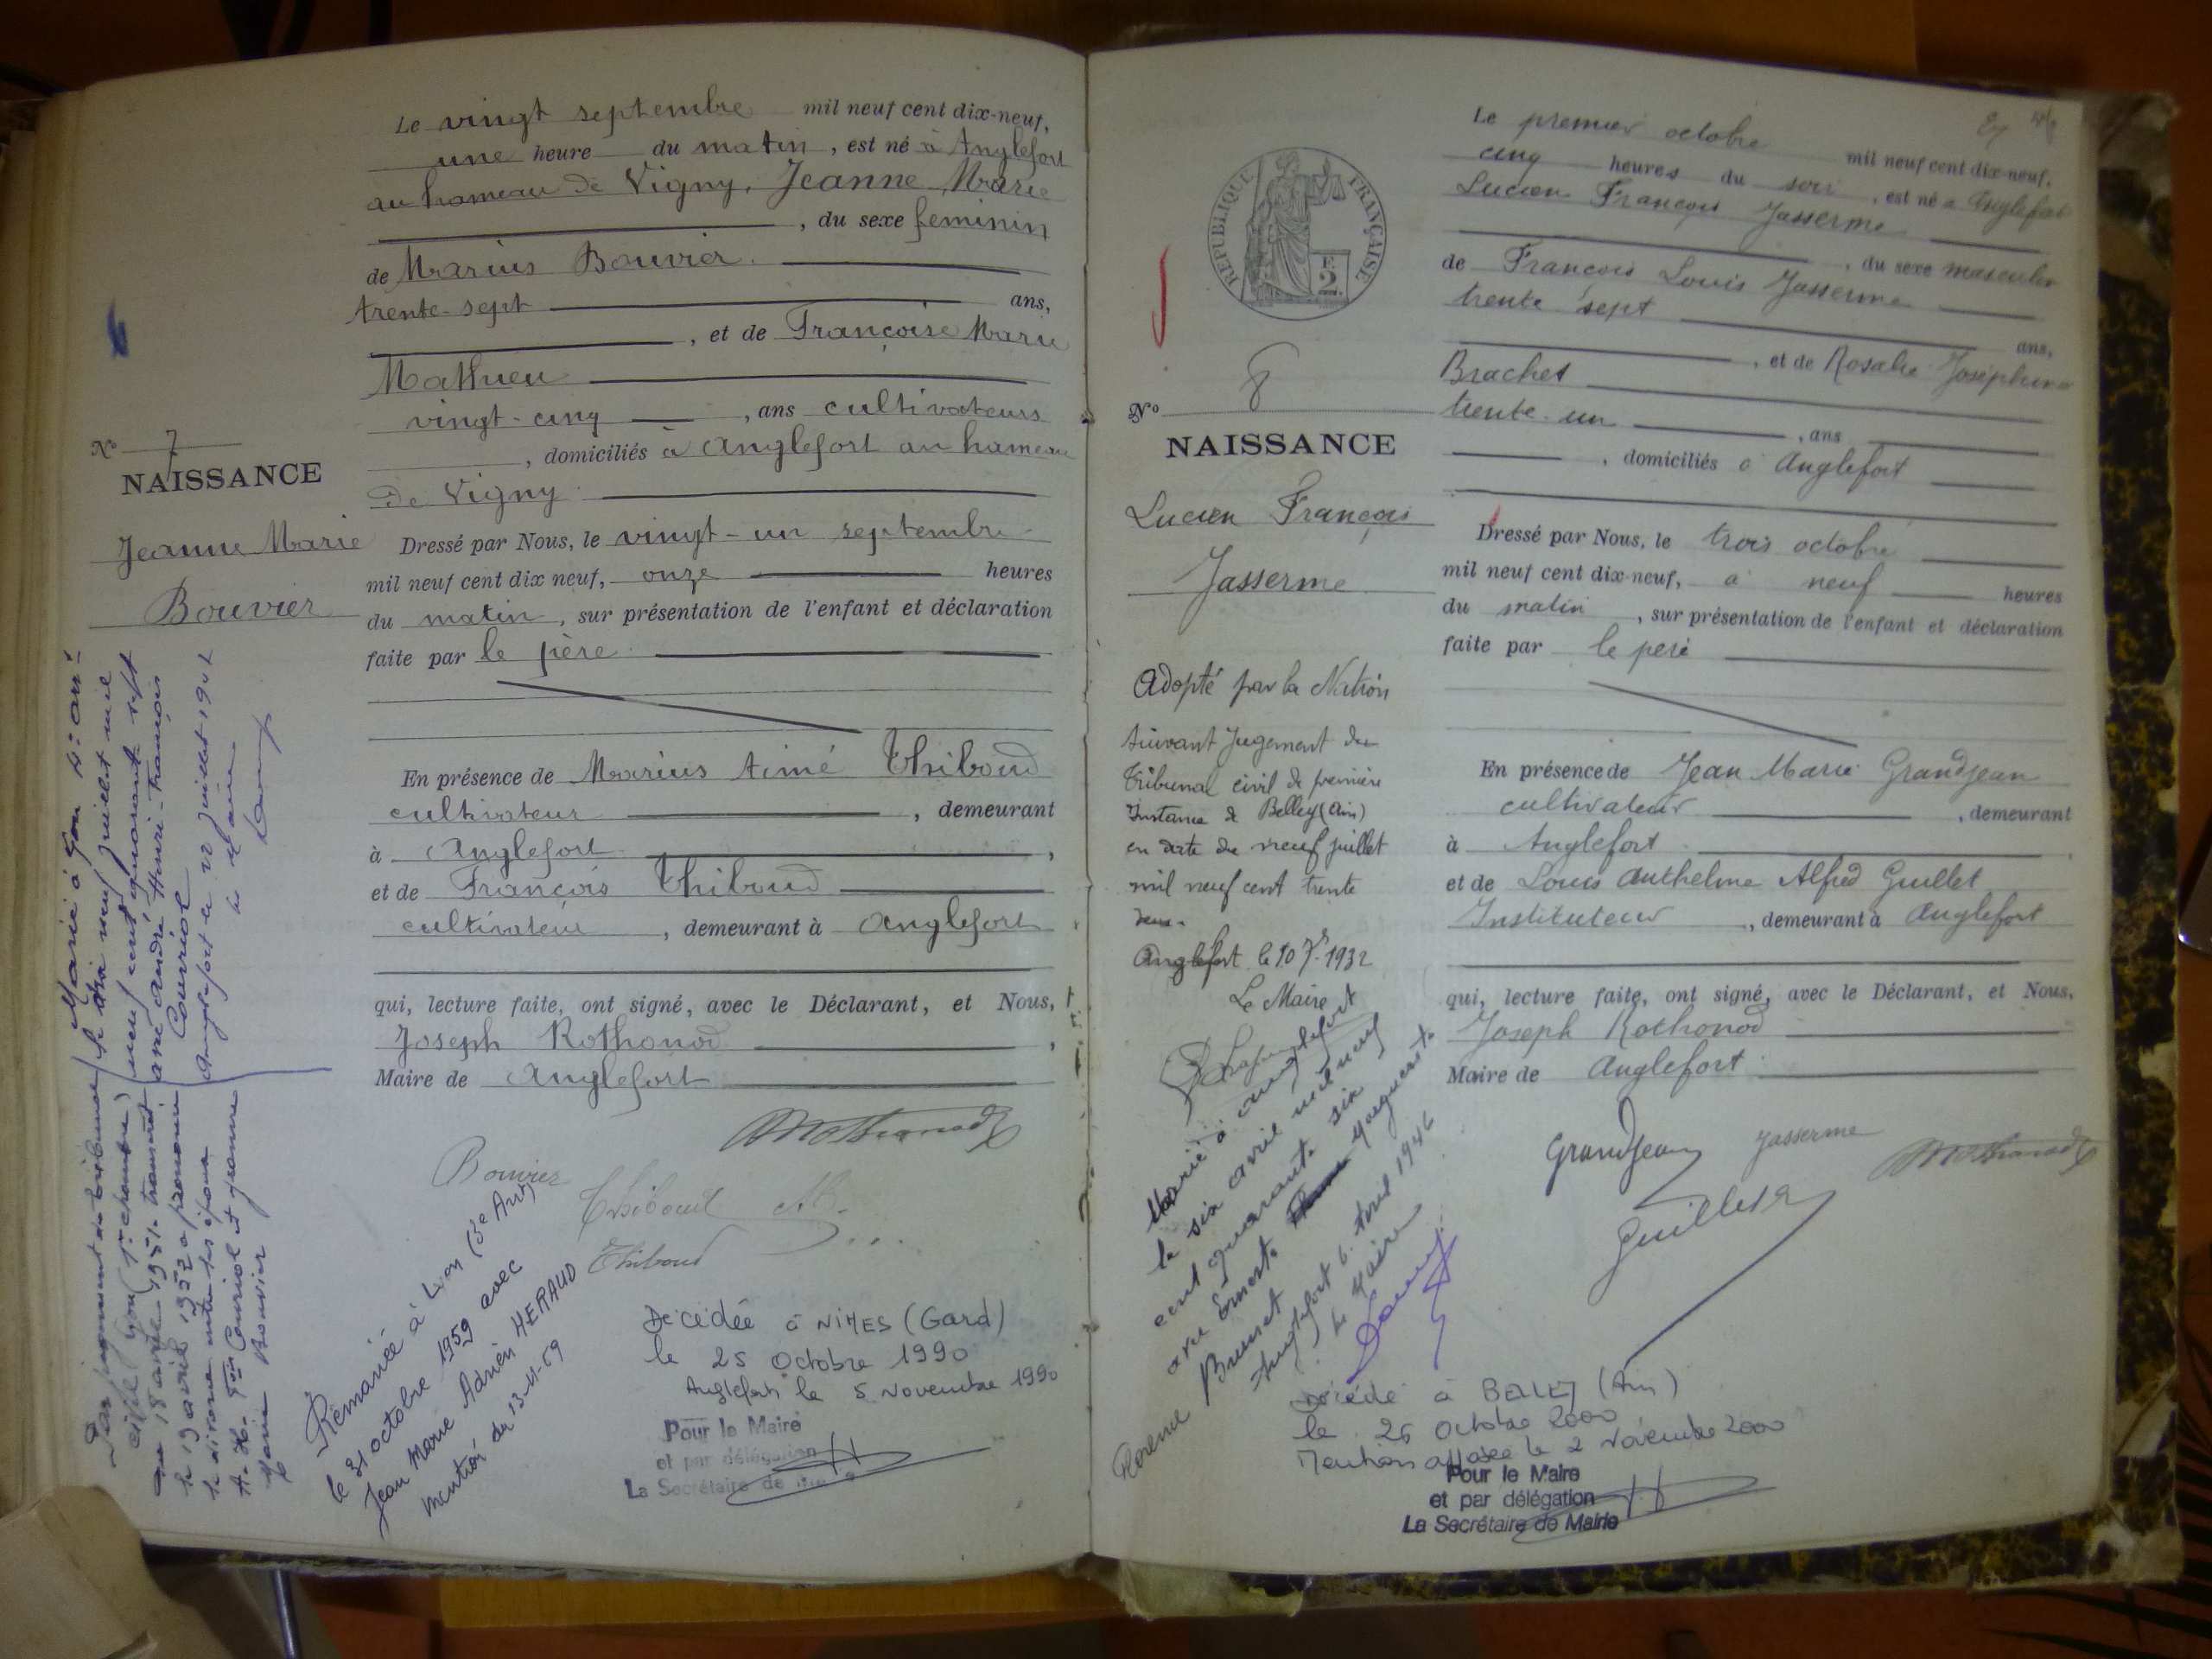 Le vingt septembre mil neuf cent dix-neuf,
une heure du matin, est né à Anglefort
au hameau de Vigny, Jeanne Marie
, du sexe feminin
de Marius Bouvier
trente-sept ans,
, et de Françoise Marie
Mathieu
vingt-cinq, ans cultivateurs
, domiciliés à Anglefort au hameau
de Vigny
Dressé par Nous, le vingt-un septembre
mil neuf cent dix neuf, onze heures
du matin, sur présentation de l'enfant et déclaration
faite par le père
En présence de Marius Aimé Thiboud
cultivateur, demeurant
à Anglefort,
et de François Thiboud
cultivateur, demeurant à Anglefort
qui, lecture faite, ont signé, avec le Déclarant, et Nous,
Joseph Rothonod,
Maire de Anglefort
Bouvier
Thiboud
Thiboud
No 7
NAISSANCE
Jeanne Marie
Bouvier
Marié à Lyon 4e arrt
le neuf juillet mil
neuf cent quarante sept
avec André Henri-François
Couriol
Anglefort le 22 juillet
le Maire
Par jugement du tribunal
civil Lyon (1re chambre)
du 18 1951 transcrit
le 19 avril 1952 a prononcé
le divorce entre les époux
A. H. Fois Couriol et Jeanne
Marie Bouvier
Remariée à Lyon (3e Arrt)
le 31 octobre 1959 avec
Jean Marie Adrien HERAUD
mention du 13-11-59
Décédée à NIMES (Gard)
le 25 Octobre 1990
Anglefort le 5 Novembre 1990
Pour le Maire
et par délégation
La Secrétaire de Mairie
Le premier octobre mil neuf cent dix-neuf,
cinq heures du soir, est né à Anglefort
Lucien François Jasserme
, du sexe masculin
de François Louis Jasserme
trente sept ans,
, et de Rosalie Joséphine
Brachet
trente-un, ans
, domiciliés à Anglefort
Dressé par Nous, le trois octobre
mil neuf cent dix-neuf, à neuf heures
du matin, sur présentation de l'enfant et déclaration
faite par le père
En présence de Jean Marie Grandjean
cultivateur, demeurant
à Anglefort
et de Louis Anthelme Alfred Guillet
Instituteur, demeurant à Anglefort
qui, lecture faite, ont signé, avec le Déclarant, et Nous,
Joseph Rothonod
Maire de Anglefort
Grandjean Jasserme
Guillet
REPUBLIQUE FRANÇAISE
F
2
No 8
NAISSANCE
Lucien François
Jasserme
Adopté par la Nation
suivant Jugement du
Tribunal civil de première
Instance de Belley (Ain)
en date du neuf juillet
mil neuf cent trente
deux.
Anglefort le 10 7. 1932
Le Maire
Marié à Anglefort
le six avril mil neuf
cent quarante six
avec Erneste Marguerite
Florence Brunet
Anglefort 6. Avril 1946
Le Maire
Décédé à BELLEY (Ain)
le 26 octobre 2000
Mention apposée le 2 Novembre 2000
Pour le Maire
et par délégation
La Secrétaire de Mairie